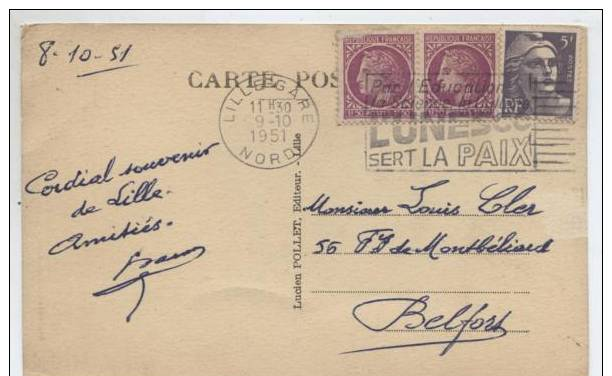 8-10-51
CARTE POS
RÉPUBLIQUE FRANÇAISE
RÉPUBLIQUE FRANÇAISE
5F
POSTES
RF
LILLE-GARE
11H30
9-10
1951
NORD
Par l'Éducation
L'UNESCO
SERT LA PAIX
Cordial souvenir
de Lille.
Amitiés.
Lucien POLLET, Editeur. - Lille
Monsieur Louis Cler
56 Fg de Montbéliard
Belfort